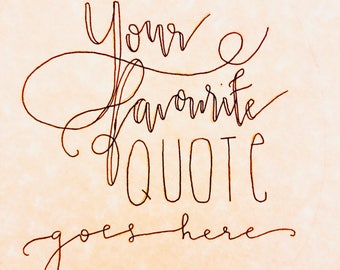 Your
favourite
QUOTE
goes here